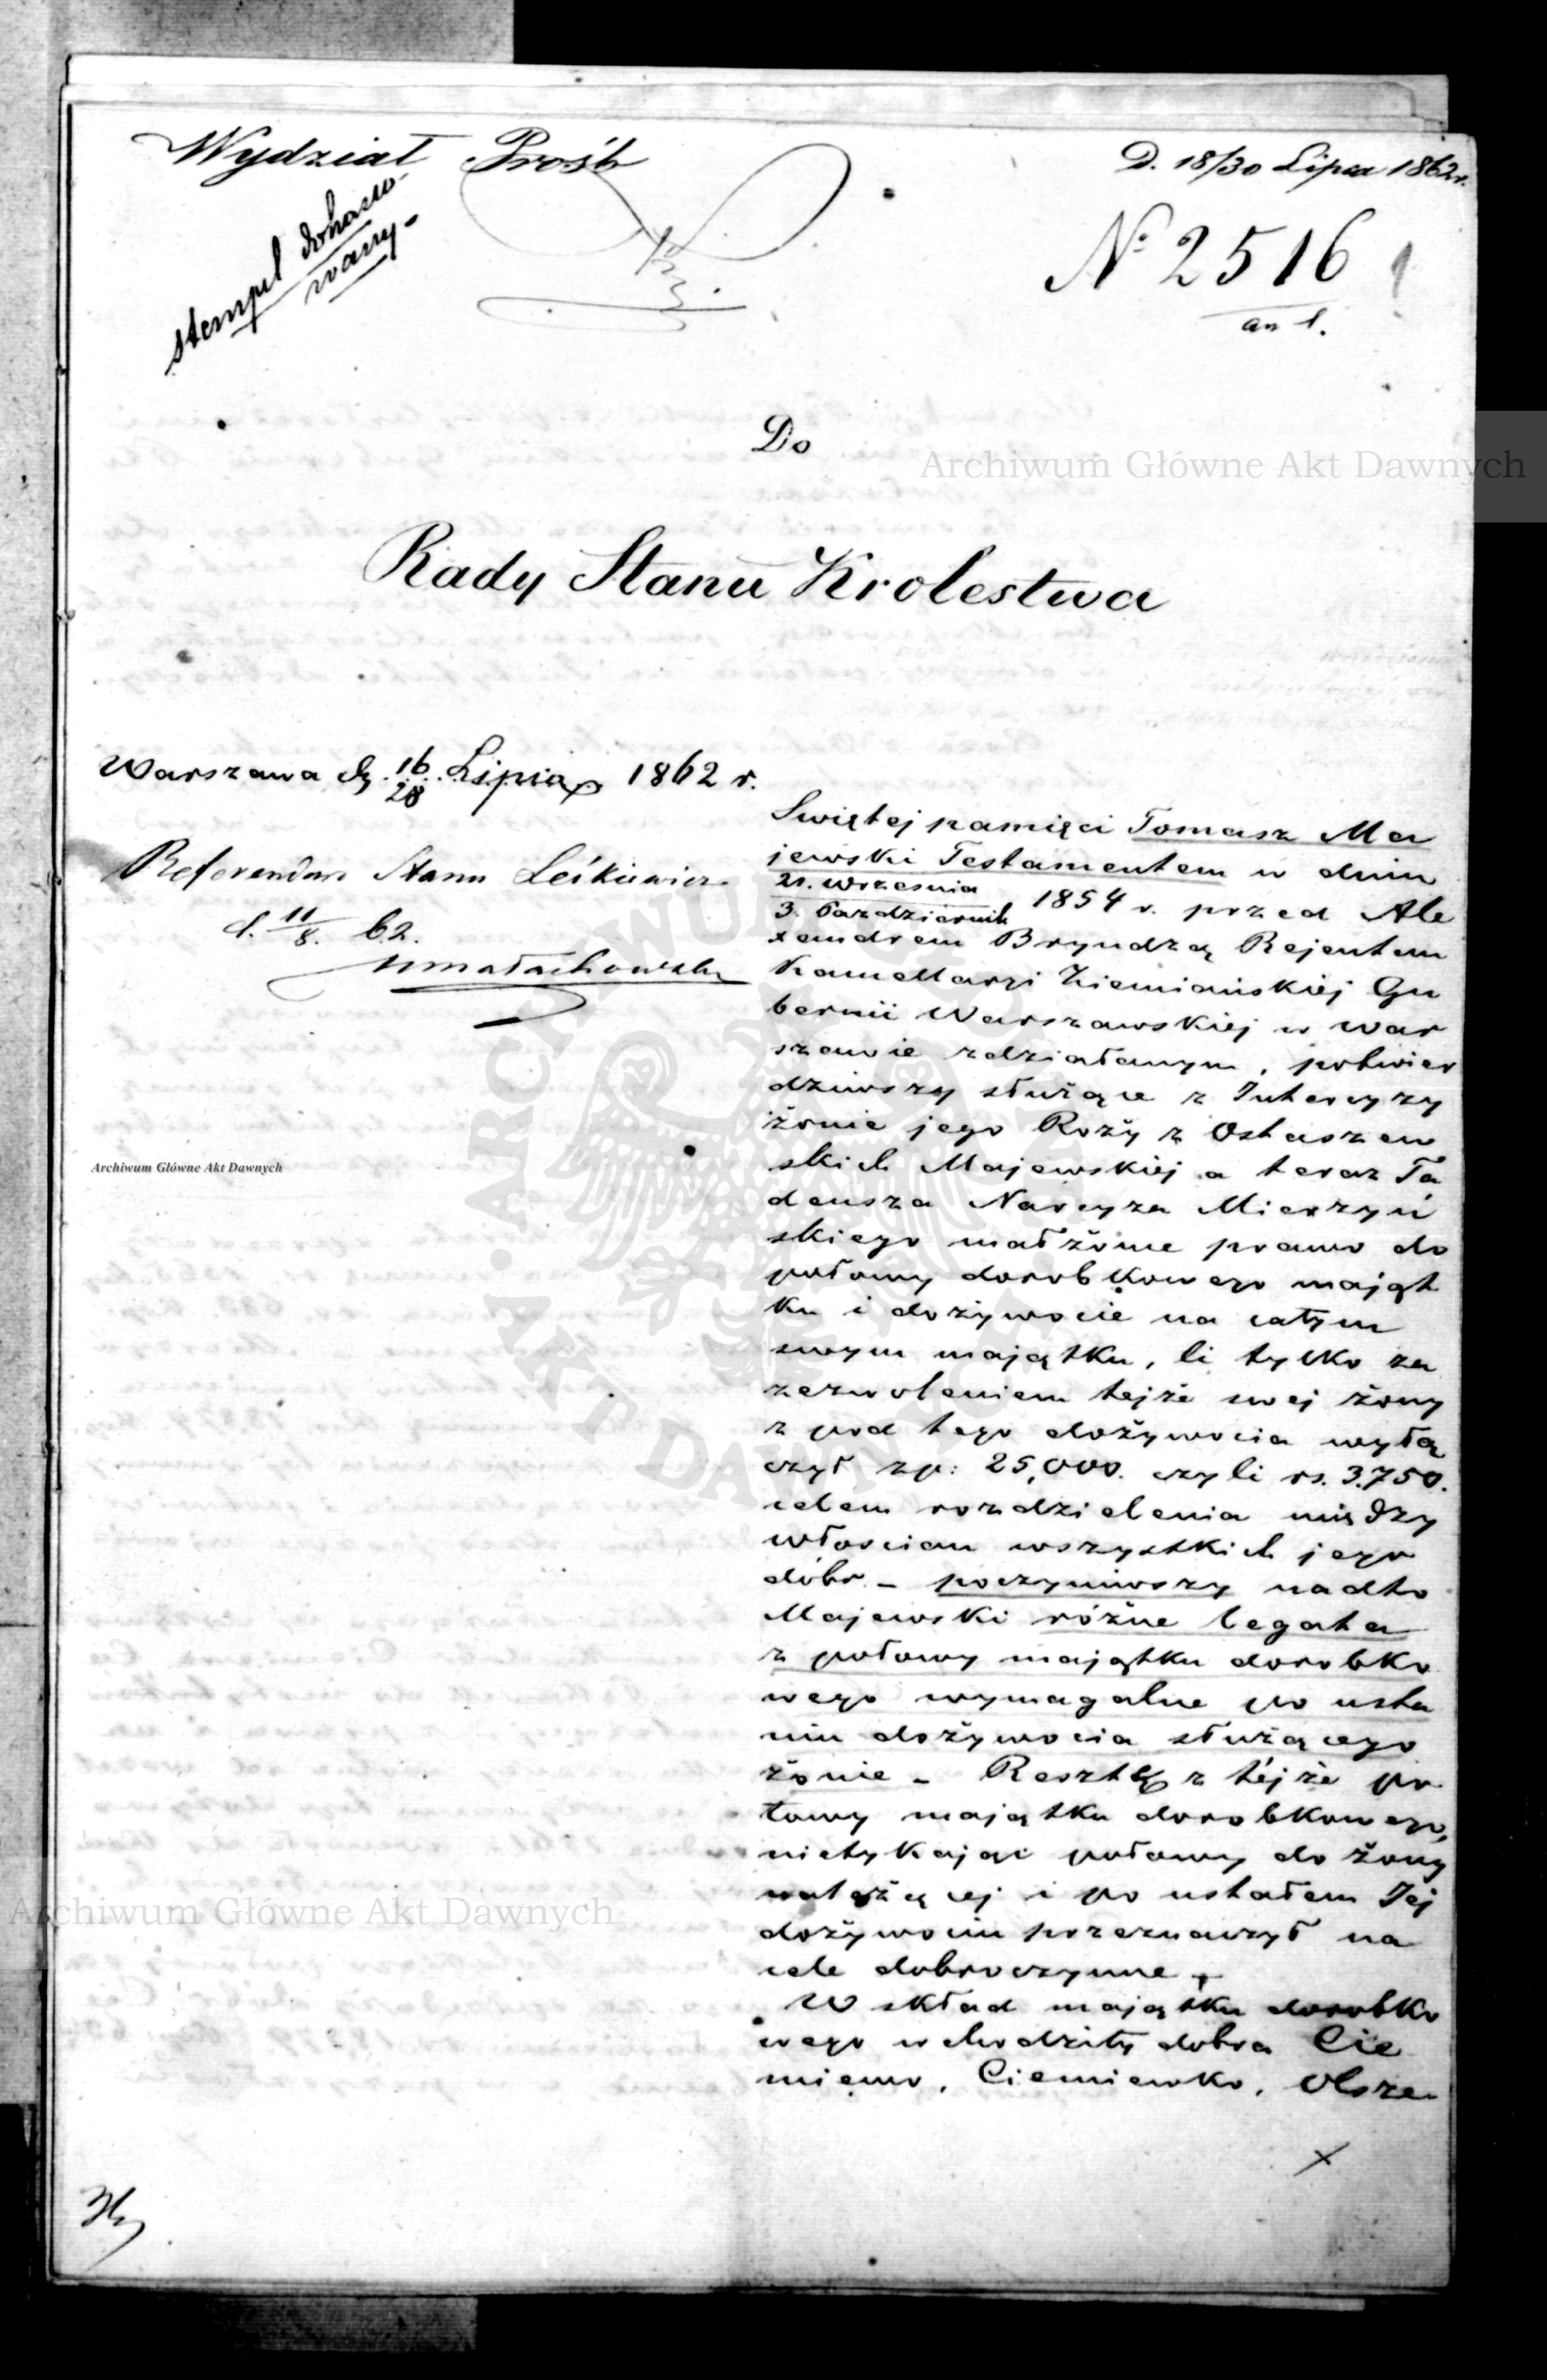 Wydział Prośb
D. 18/30 Lipca 1862 r.
stempel skasso-
wany.
№ 2516
Do
Rady Stanu Krolestwa
Warszawa d. 16/28 Lipca 1862 r.
Referendarz Stanu Leśkiewicz
d. 11/8. 62.
Małachowski
Swiętej pamięci Tomasz Ma
jewski Testamentem w dniu
21. Wrzesnia
3. Pazdziernik 1854 r. przed Ale
xandrem Bryndzą Rejentem
Kancellaryi Ziemiańskiej Gu
bernii Warszawskiej w War
szawie zdziałanym, potwier
dziwszy służące z Intercyzy
żonie jego Roży z Ostaszew
skich Majewskiej a teraz Ta
deusza Narcyza Mierzyń
skiego małżonce prawo do
połowy dorobkowego mająt
ku i dożywocie na całym
swym majątku, li tylko za
zezwoleniem tejże swej żony
z pod tego dożywocia wyłą
czył zp: 25,000. czyli rs. 3.750.
celem rozdzielenia między
włoscian wszystkich jego
dóbr – poczyniwszy nadto
Majewski różne legata
z połowy majątku dorobko
wego wymagalne po usta
niu dożywocia służącego
żonie – Resztę z téjże po
łowy majątku dorobkowego,
nietykając połowy do żony
należącej i po ustałem Jej
dożywociu przeznaczył na
cele dobroczynne.
W skład majątku dorobko
wego wchodziły dobra Cie
miewo, Ciemiewko, Olsze
Archiwum Główne Akt Dawnych
Archiwum Główne Akt Dawnych
Archiwum Główne Akt Dawnych
ARCHIWUM GŁÓWNE AKT DAWNYCH